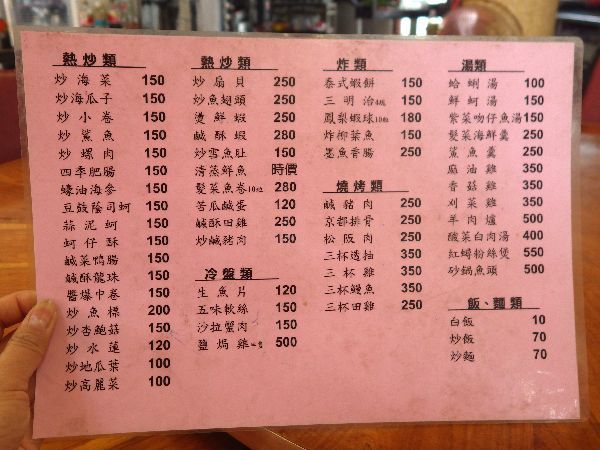 熱炒類
炒海菜 150
炒海瓜子 150
炒小卷 150
炒鯊魚 150
炒螺肉 150
四季肥腸 150
蠔油海參 150
豆豉蔭司蚵 150
蒜泥蚵 150
蚵仔酥 150
鹹菜鴨腸 150
鹹酥龍珠 150
醬爆中卷 150
炒魚標 200
炒杏鮑菇 150
炒水蓮 120
炒地瓜葉 100
炒高麗菜 100
熱炒類
炒扇貝 250
炒魚翅頭 250
燙鮮蝦 250
鹹酥蝦 280
炒雪魚肚 150
清蒸鮮魚 時價
髮菜魚卷10粒 280
苦瓜鹹蛋 120
鹹酥田雞 250
炒鹹豬肉 150
冷盤類
生魚片 120
五味軟絲 150
沙拉蟹肉 150
鹽焗雞 500
炸類
泰式蝦餅 150
三明治4塊 150
鳳梨蝦球10粒 180
炸柳葉魚 150
墨魚香腸 250
燒烤類
鹹豬肉 250
京都排骨 250
松阪肉 250
三杯透抽 350
三杯雞 350
三杯鰻魚 350
三杯田雞 250
湯類
蛤蜊湯 100
鮮蚵湯 150
紫菜吻仔魚湯 150
髮菜海鮮羹 250
鯊魚羹 250
麻油雞 350
香菇雞 350
刈菜雞 350
羊肉爐 500
酸菜白肉湯 400
紅蟳粉絲煲 550
砂鍋魚頭 500
飯、麵類
白飯 10
炒飯 70
炒麵 70